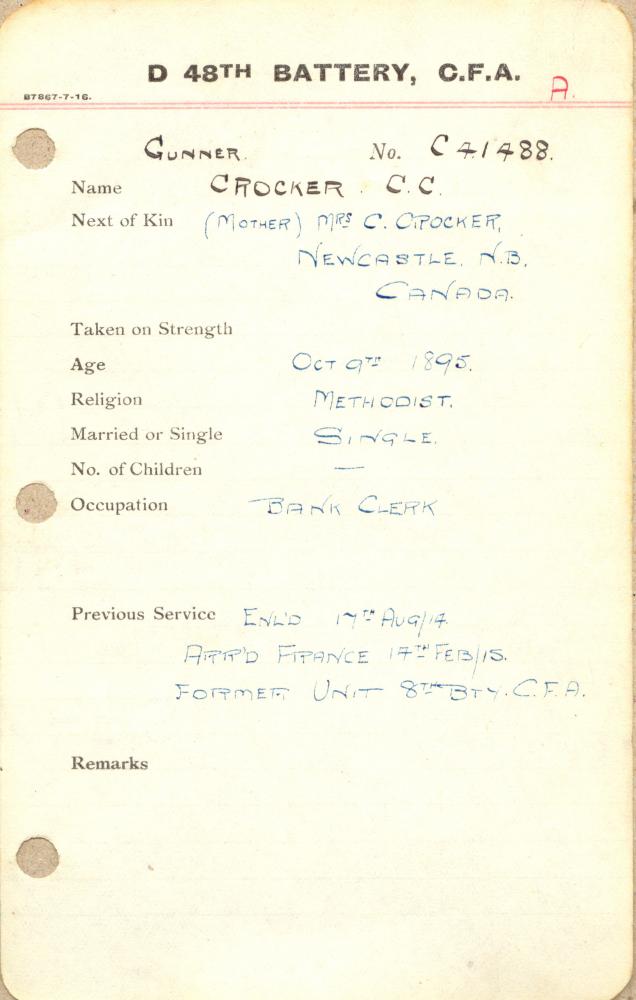 D 48TH BATTERY, C.F.A.
B7867-7-16.
A.
GUNNER. No. C 41488.
Name CROCKER. C.C.
Next of Kin (MOTHER) MRS C. CROCKER,
NEWCASTLE. N.B.
CANADA.
Taken on Strength
Age OCT 9TH 1895.
Religion METHODIST.
Married or Single SINGLE.
No. of Children —
Occupation BANK CLERK
Previous Service ENL'D 17TH AUG/14.
ARR'D FRANCE 14TH FEB/15.
FORMER UNIT 8TH BTY. C.F.A.
Remarks